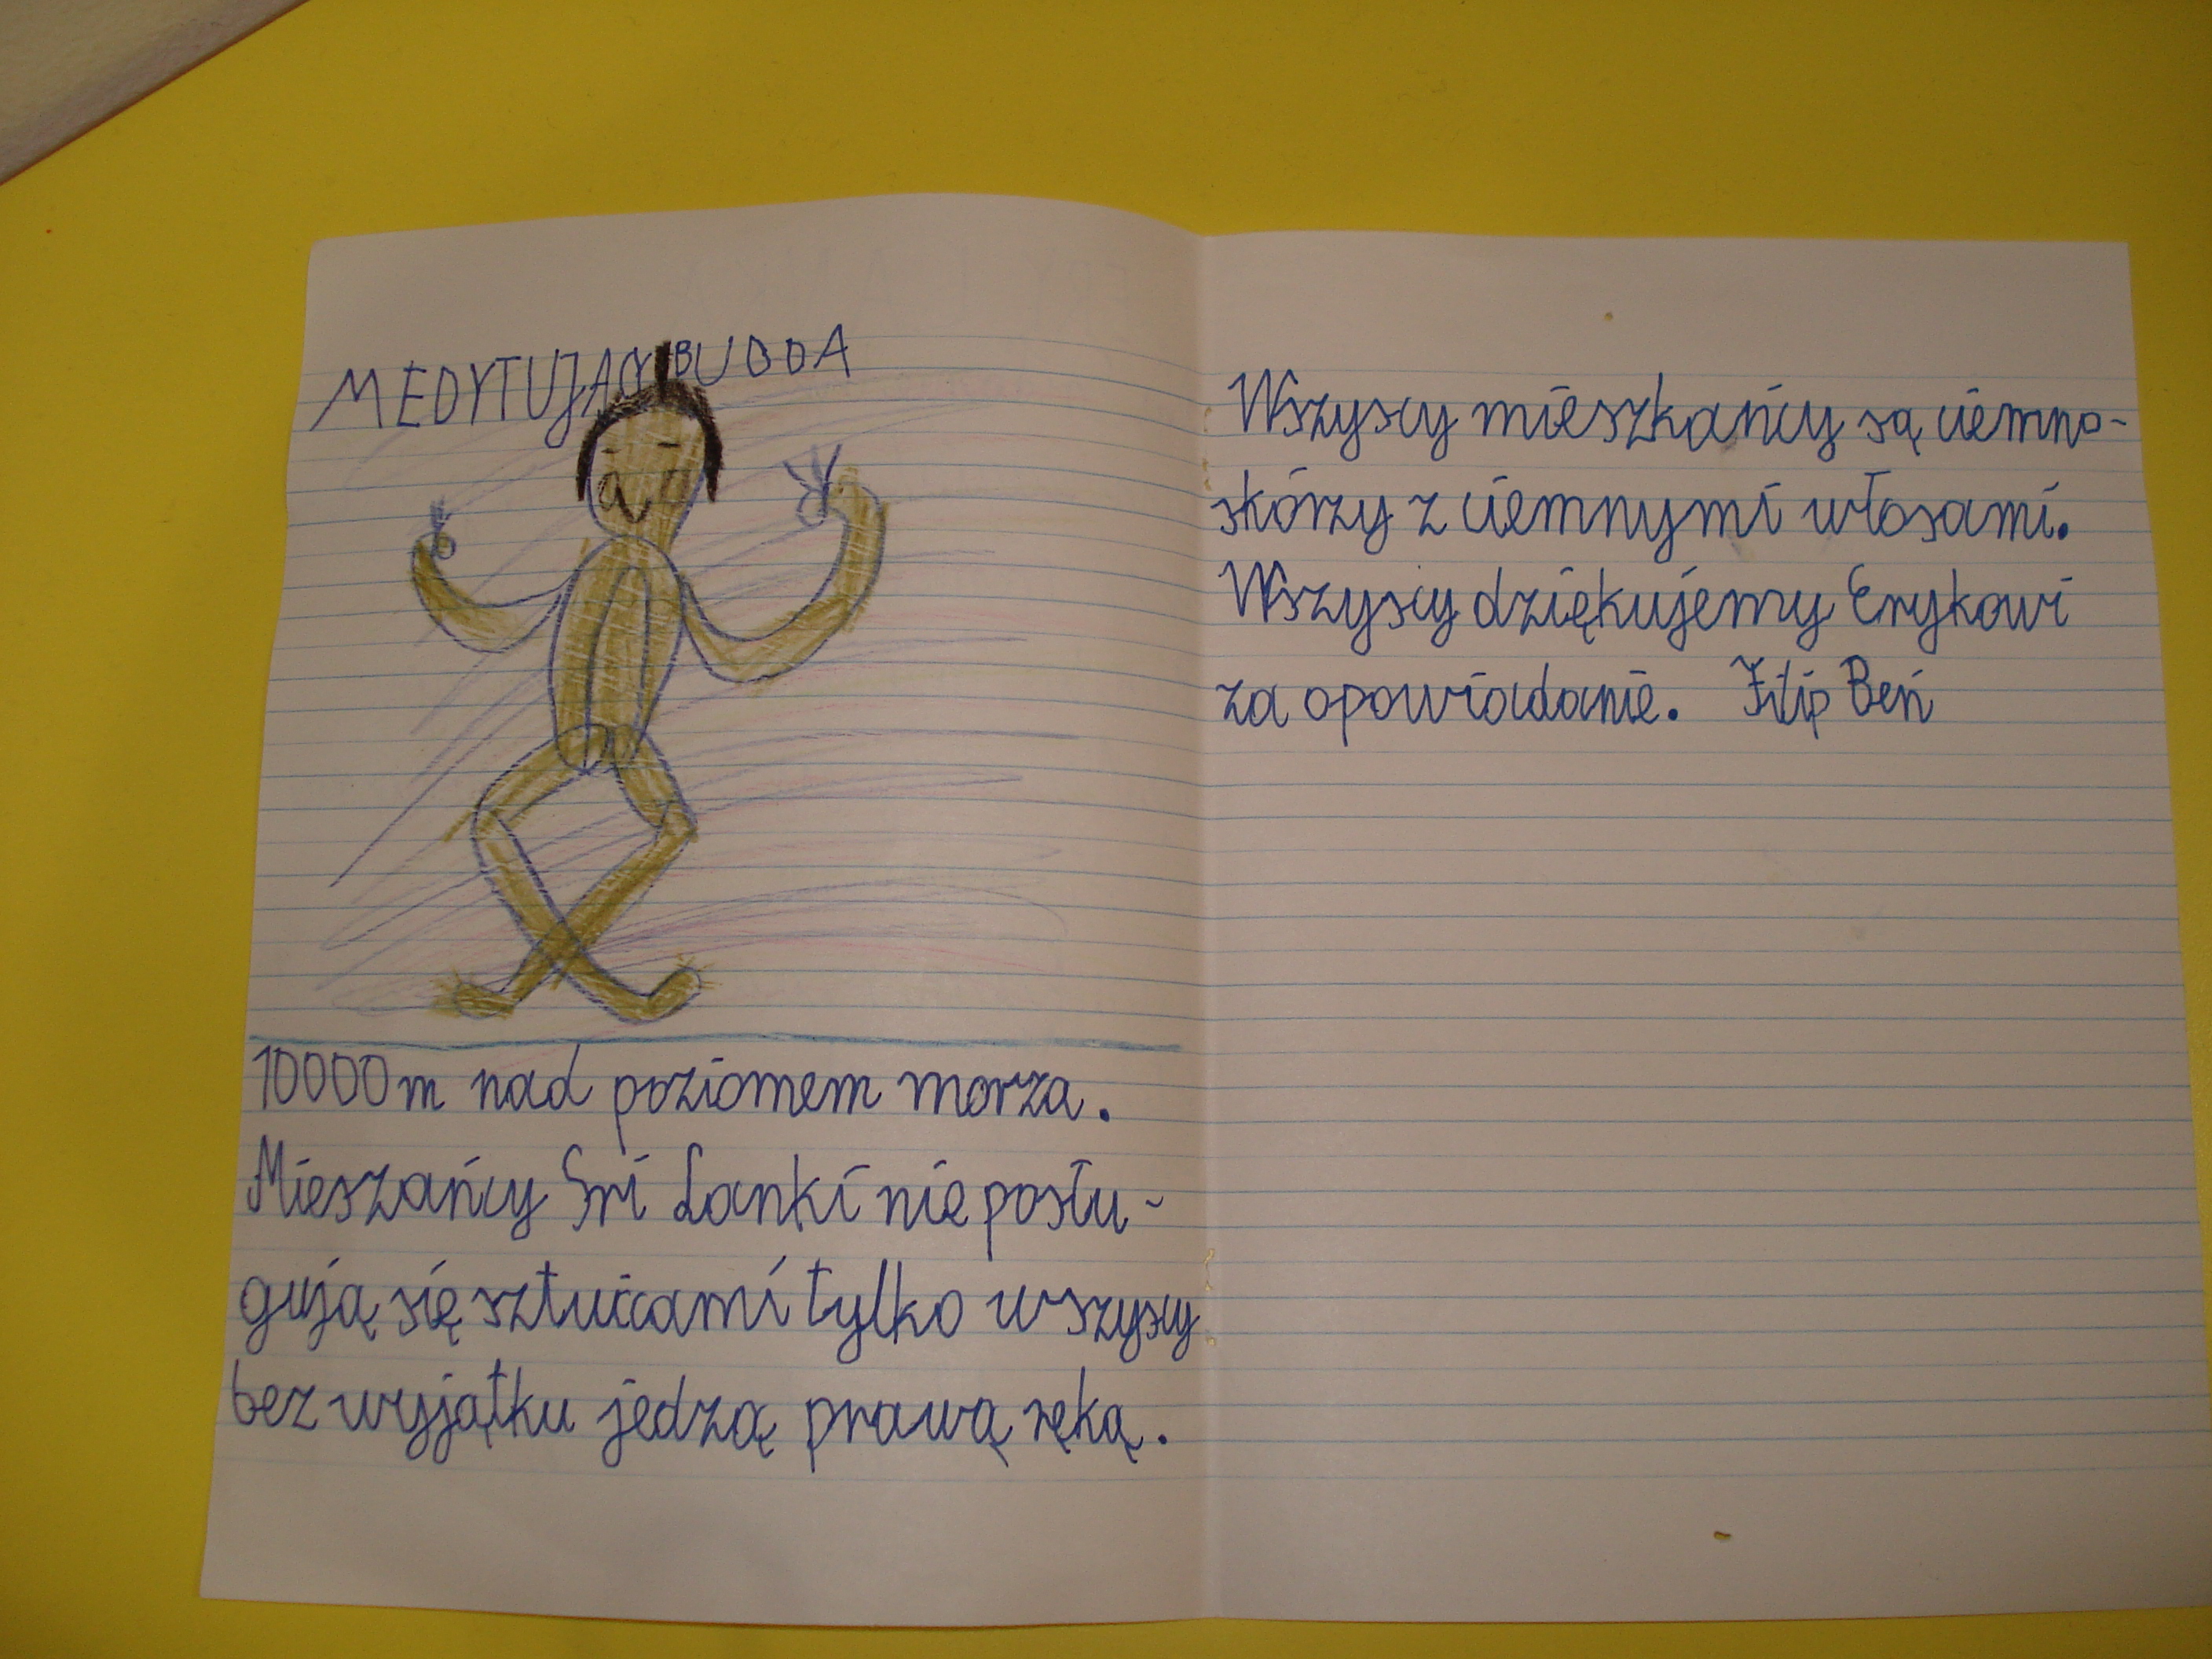 MEDYTUJĄCY BUDDA
10000 m nad poziomem morza.
Mieszańcy Sri Lanki nie posłu-
gują się sztućcami tylko wszyscy
bez wyjątku jedzą prawą ręką.
Wszyscy mieszkańcy są ciemno-
skórzy z ciemnymi włosami.
Wszyscy dziękujemy Erykowi
za opowiadanie. Filip Beń